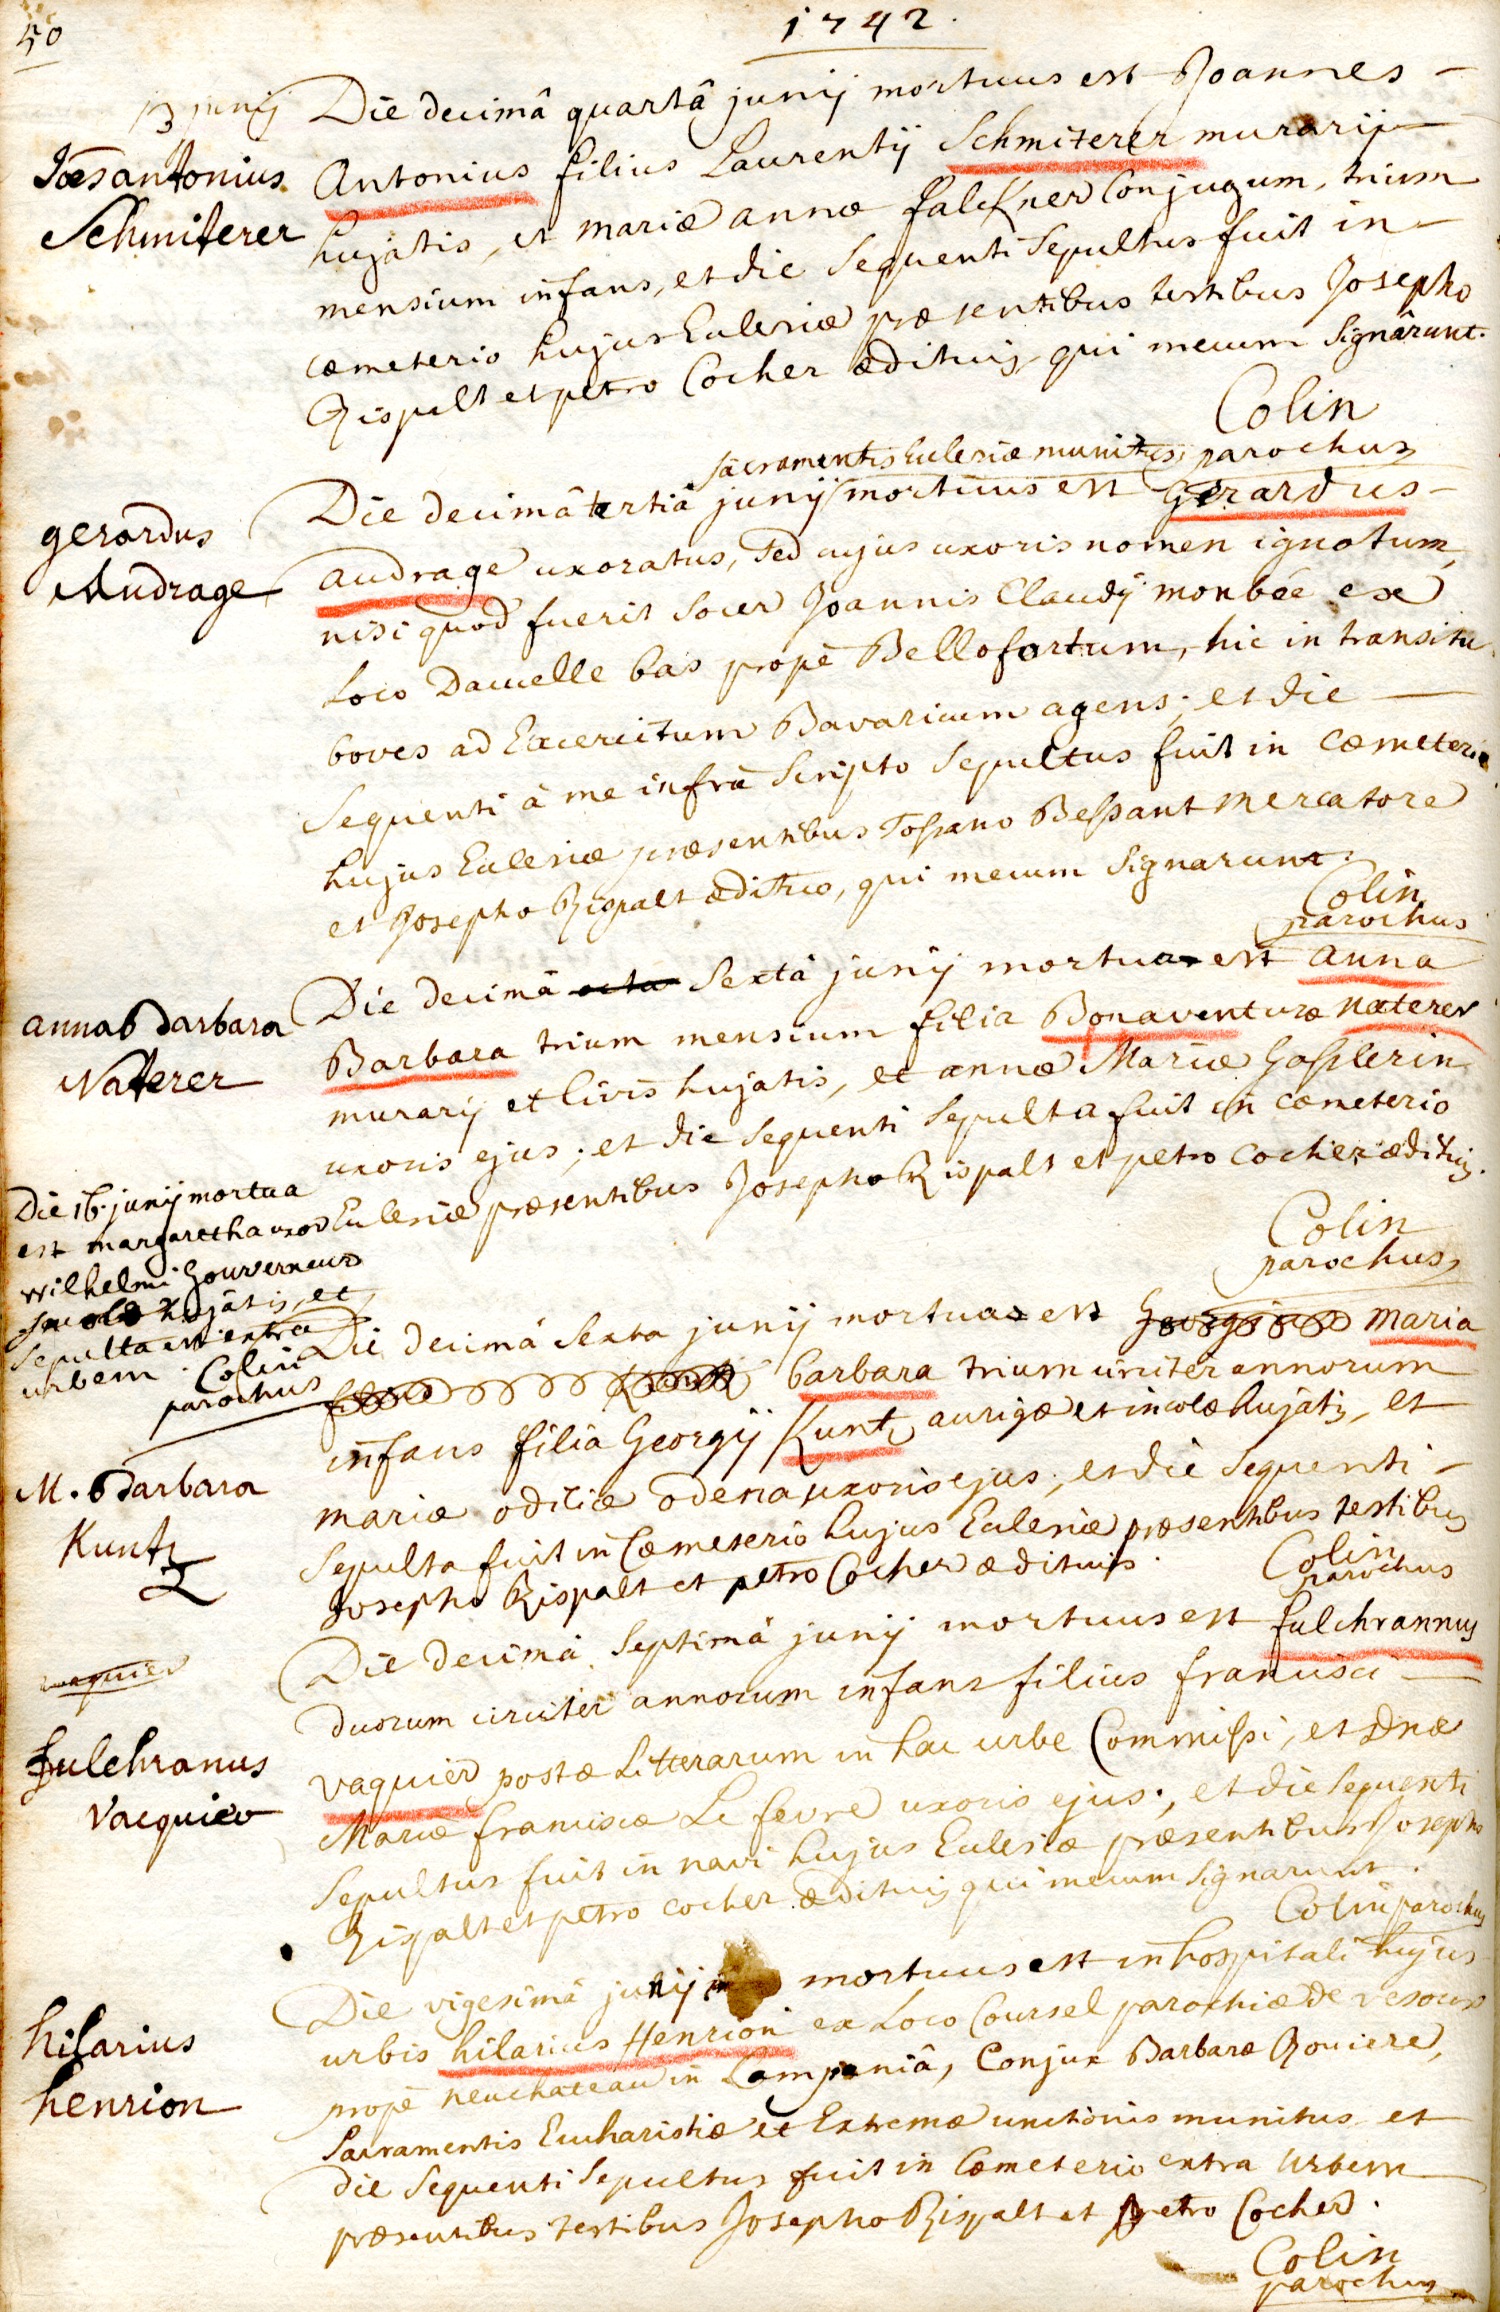 50
1742.
13 junij
Joes antonius
Schmiterer
Die decimâ quartâ junij mortuus est Joannes
Antonius filius Laurentij Schmiterer murarij
hujatis, et mariæ annæ falckner Conjugum, trium
mensium infans, et die sequenti sepultus fuit in
cæmeterio hujus Ecclesiæ præsentibus testibus Josepho
Rispalt et petro Cocher ædituis qui mecum signârunt.
Colin
parochus
gerardus
Audrage
sacramentis Ecclesiæ munitus
Die decimâ tertiâ junij mortuus est Gerardus
audrage uxoratus, sed cujus uxoris nomen ignotum,
nisi quod fuerit socer Joannis Claudij monbée ex
loco Daucelle bas propè Bellofortum, hic in transitu
boves ad Exercitum Bavaricum agens; et die
sequenti à me infrà scripto sepultus fuit in cæmeterio
hujus Ecclesiæ præsentibus Tossano Bessant mercatore
et Josepho Rispalt ædituo, qui mecum signarunt.
Colin
parochus
anna Barbara
Naterer
Die decimâ octa sextâ junij mortua est anna
Barbara trium mensium filia Bonaventuræ naterer
murarij et civis hujatis, et annæ Mariæ Gasslerin
uxoris ejus; et die sequenti sepulta fuit in cæmeterio
Ecclesiæ præsentibus Josepho Rispalt et petro cocher ædituis.
Colin
parochus
Die 16. junij mortua
est margaretha uxor
wilhelmi Gouverneur
incolæ hujatis, et
sepulta est extra
urbem. Colin
parochus
M. Barbara
Kuntz
Die decimâ sexta junij mortua est maria
barbara trium circiter annorum
infans filia Georgij Kuntz aurigæ et incolæ hujatis, et
mariæ odiliæ odena uxoris ejus; et die sequenti
sepulta fuit in Cæmeterio hujus Ecclesiæ præsentibus testibus
Josepho Rispalt et petro Cocher ædituis.
Colin
parochus
vaquier
fulchranus
Vacquier
Die decimâ septimâ junij mortuus est fulchrannus
duorum circiter annorum infans filius francisci
vaquier postæ Litterarum in hac urbe Commissi, et Dnæ
Mariæ franciscæ Le fevre uxoris ejus; et die sequenti
sepultus fuit in navi hujus Ecclesiæ præsentibus Josepho
Rispalt et petro cocher ædituis qui mecum signarunt.
Colin parochus
hilarius
henrion
Die vigesimâ junij mortuus est in hospitali hujus
urbis hilarius Henrion ex Loco Coursel parochiæ de vesoux
propè neuchateau in Campaniâ, Conjux Barbaræ Rouiere,
sacramentis Eucharistiæ et Extremæ unctionis munitus et
die sequenti sepultus fuit in Cæmeterio extra Urbem
præsentibus testibus Josepho Rispalt et petro Cocher.
Colin
parochus